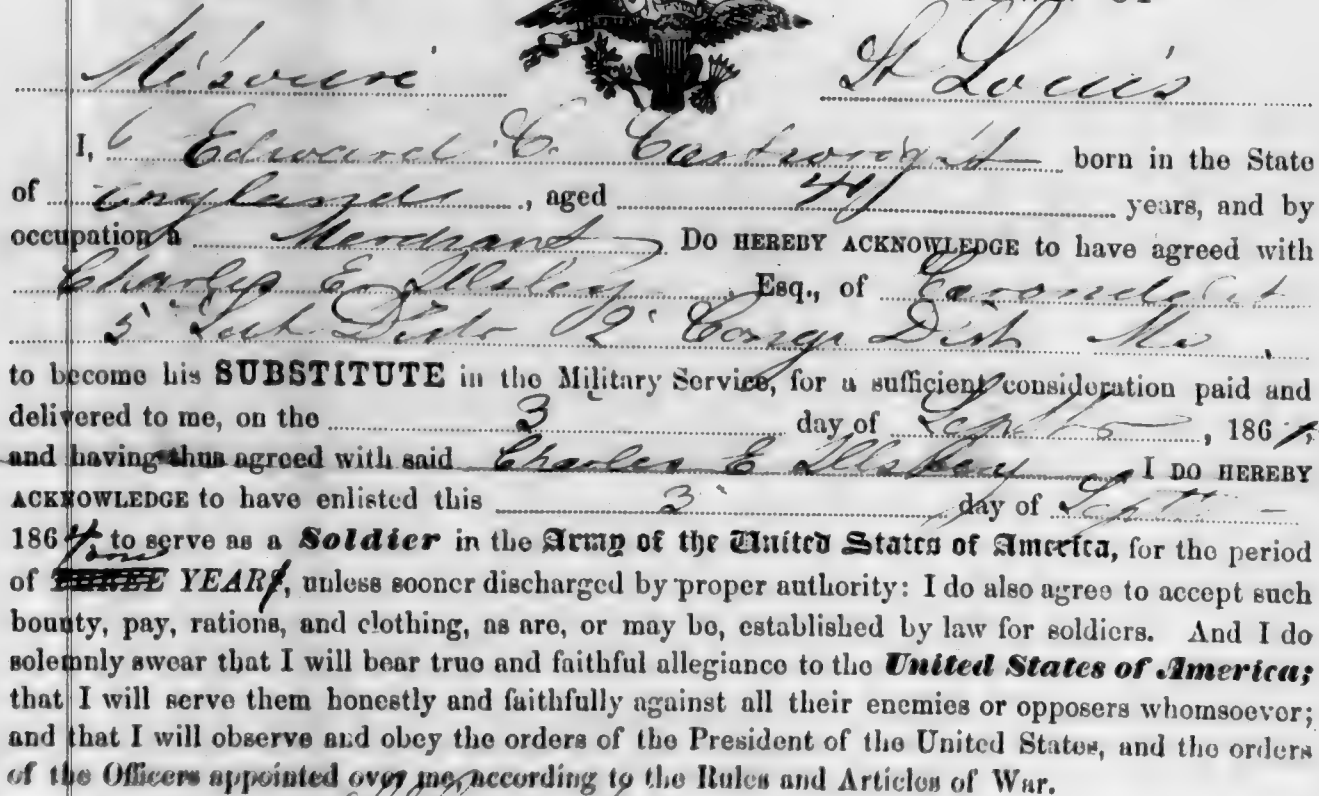 Missouri St Louis
I, Edward C. Cartwright born in the State
of England, aged years, and by
occupation a Merchant Do HEREBY ACKNOWLEDGE to have agreed with
Charles E. Illsley Esq., of Carondelet
5' Sub Distr 2' Congr Distr Mo
to become his SUBSTITUTE in the Military Service, for a sufficient consideration paid and
delivered to me, on the 3 day of Septbr, 1864,
and having thus agreed with said Charles E Illsley I DO HEREBY
ACKNOWLEDGE to have enlisted this 3' day of Septbr
1864 to serve as a Soldier in the Army of the United States of America, for the period
of one YEAR, unless sooner discharged by proper authority: I do also agree to accept such
bounty, pay, rations, and clothing, as are, or may be, established by law for soldiers. And I do
solemnly swear that I will bear true and faithful allegiance to the United States of America;
that I will serve them honestly and faithfully against all their enemies or opposers whomsoever;
and that I will observe and obey the orders of the President of the United States, and the orders
of the Officers appointed over me, according to the Rules and Articles of War.